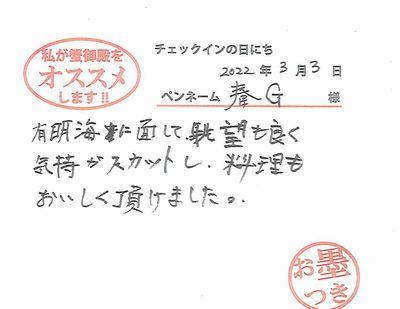 私が蟹御殿を
オススメ
します!!
チェックインの日にち
2022年3月3日
ペンネーム G 様
有明海に面して、眺望も良く
気持がスカットし、料理も
おいしく頂けました。
お墨
つき